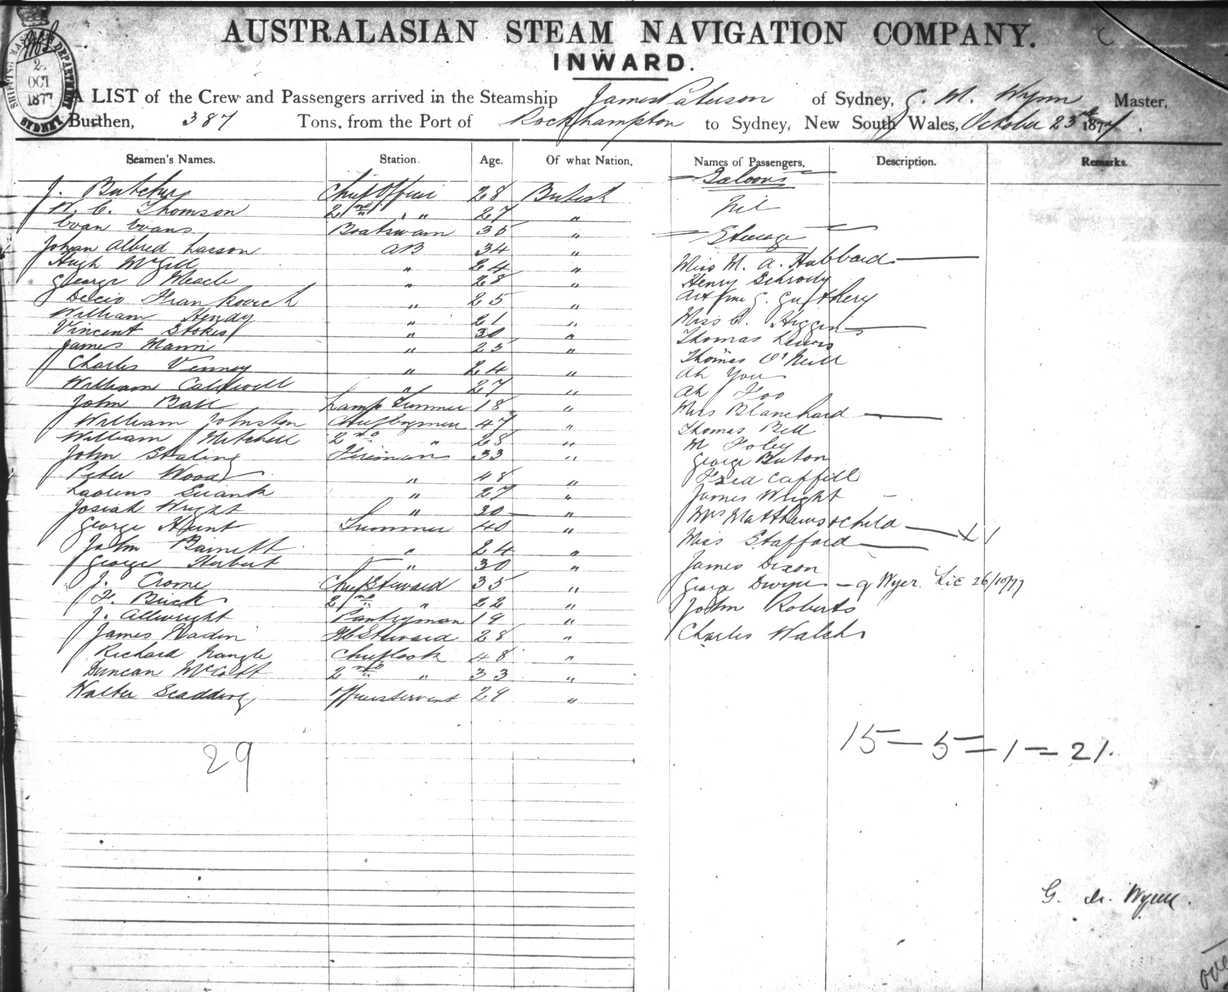 AUSTRALASIAN STEAM NAVIGATION COMPANY.
INWARD.
SHIPPING MASTERS DEPARTMENT
2
OCT
1877
SYDNEY
A LIST of the Crew and Passengers arrived in the Steamship James Paterson of Sydney, G. M. Wynn Master,
Burthen, 387 Tons, from the Port of Rockhampton to Sydney, New South Wales, October 23rd 1877.
Seamen's Names. Station. Age. Of what Nation, Names of Passengers, Description. Remarks.
J. Butchers Chief Officer 28 British
C. Thomson 2nd " " 27 "
Evan Evans Boatswain 35 "
Johan Alfred Larson AB 34 "
Hugh McGill " 24 "
George Meade " 28 "
Frankovich " 25 "
William Hendy " 21 "
Vincent Stokes " 30 "
James Mann " 25 "
Charles Venney " 24 "
William Caldwell " 27 "
John Ball Lamp Trimmer 18 "
William Johnston Chief Engineer 47 "
William Mitchell 2nd " 28 "
John Fireman 33 "
Peter Wood " 48 "
" 27 "
Josiah Wright " 30 "
George Hunt Trimmer 40 "
John Barnett " 24 "
George Herbert " 30 "
J. Crome Chief Steward 35 "
F. Buck 2nd " 22 "
J. Allwright Pantryman 19 "
James Steward 28 "
Richard Nangle Chief Cook 48 "
Duncan 2nd " 33 "
Walter Scadding 29 "
29
Saloons
Nil
Steerage
Miss M. A. Hubbard
Henry
Miss Higgins
Thomas Lewis
Thomas O'Neill
Ah You
Ah Foo
Mrs Blanchard
Thomas Bell
M Foley
George
Fred
James Wright
Mrs Matthews & child X 1
Miss Stafford
James Dixon
George Dwyer - G Wyer. Lic 26/10/77
John Roberts
Charles Walsh
15 - 5 = 1 = 21.
G. M. Wynn.